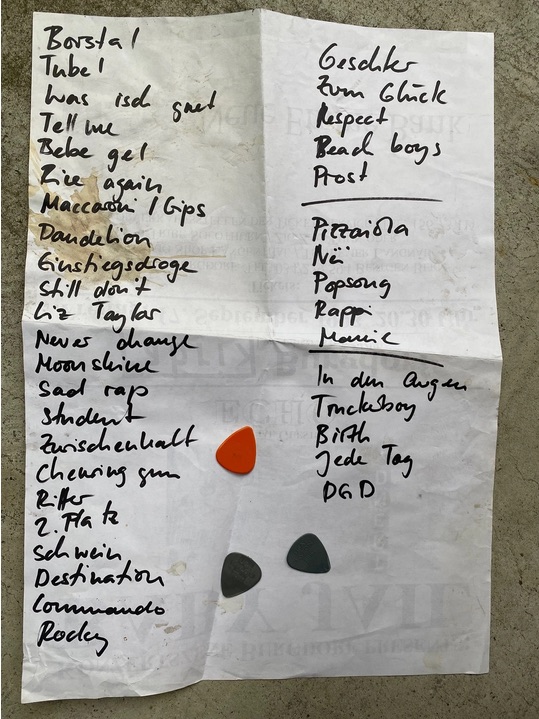 Borstal
Tubel
Was isch guet
Tell me
Bebe gel
Rise again
Maccaroni / Gips
Dandelion
Einstiegsdroge
Still don't
Liz Taylor
Never change
Moonshine
Sad rap
Student
Zwischenhalt
Chewing gum
Ritter
2. Platz
Schwein
Destination
Commando
Rocky
Zum Glück
Respect
Beach boys
Prost
Pizzaiola
Nöi
Popsong
Rappi
In den Augen
Truckboy
Birth
Jede Tag
DGD